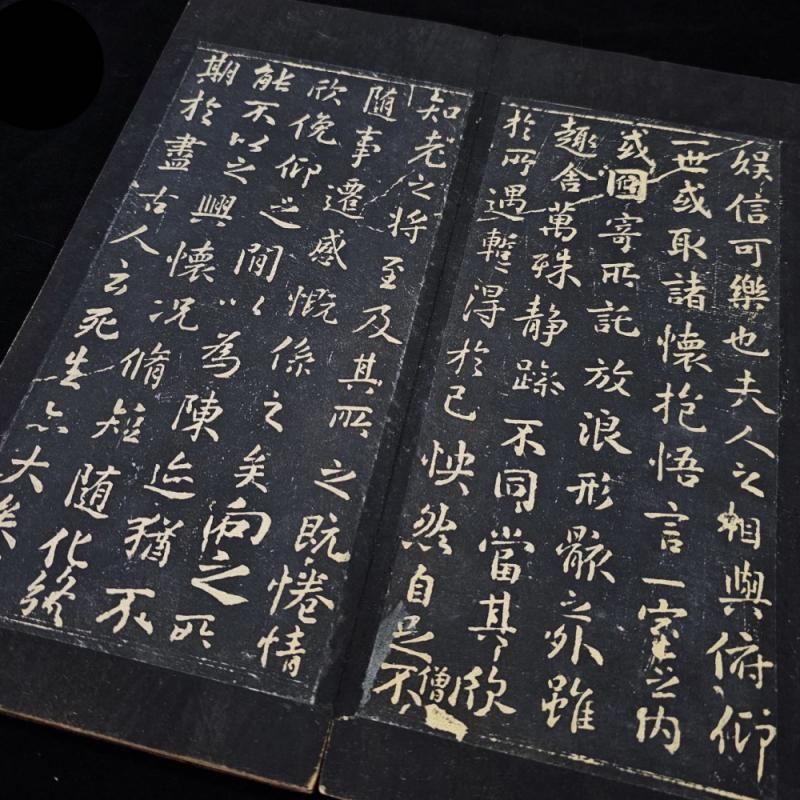 娛信可樂也夫人之相與俯仰
一世或取諸懷抱悟言一室之内
或因寄所託放浪形骸之外雖
趣舍萬殊静躁不同當其欣
僧
於所遇暫得於己怏然自足不
知老之将至及其所之既惓情
随事遷感慨係之矣向之所
欣俛仰之間以為陳迹猶不
能不以之興懷况脩短随化終
期於盡古人云死生亦大矣